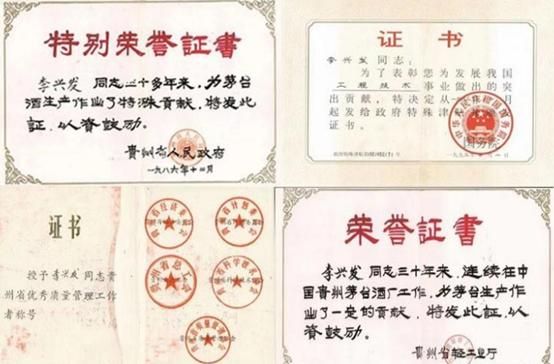 特别荣誉証書
李兴发 同志三十多年来，为茅台
酒生产作出了特殊贡献，特发此
証，以资鼓励。
贵州省人民政府
一九八六年十一月
证书
李兴发同志：
为了表彰您为发展我国
工程技术事业做出的突
出贡献，特决定从
起发给政府特殊津
证书。
国务院
证书
授予李兴发同志贵
州省优秀质量管理工作
者称号
荣誉証書
李兴发 同志三十年来，连续在中
国贵州茅台酒厂工作，为茅台生产作
出了一定的贡献，特发此証，以
资鼓励。
贵州省轻工业厅